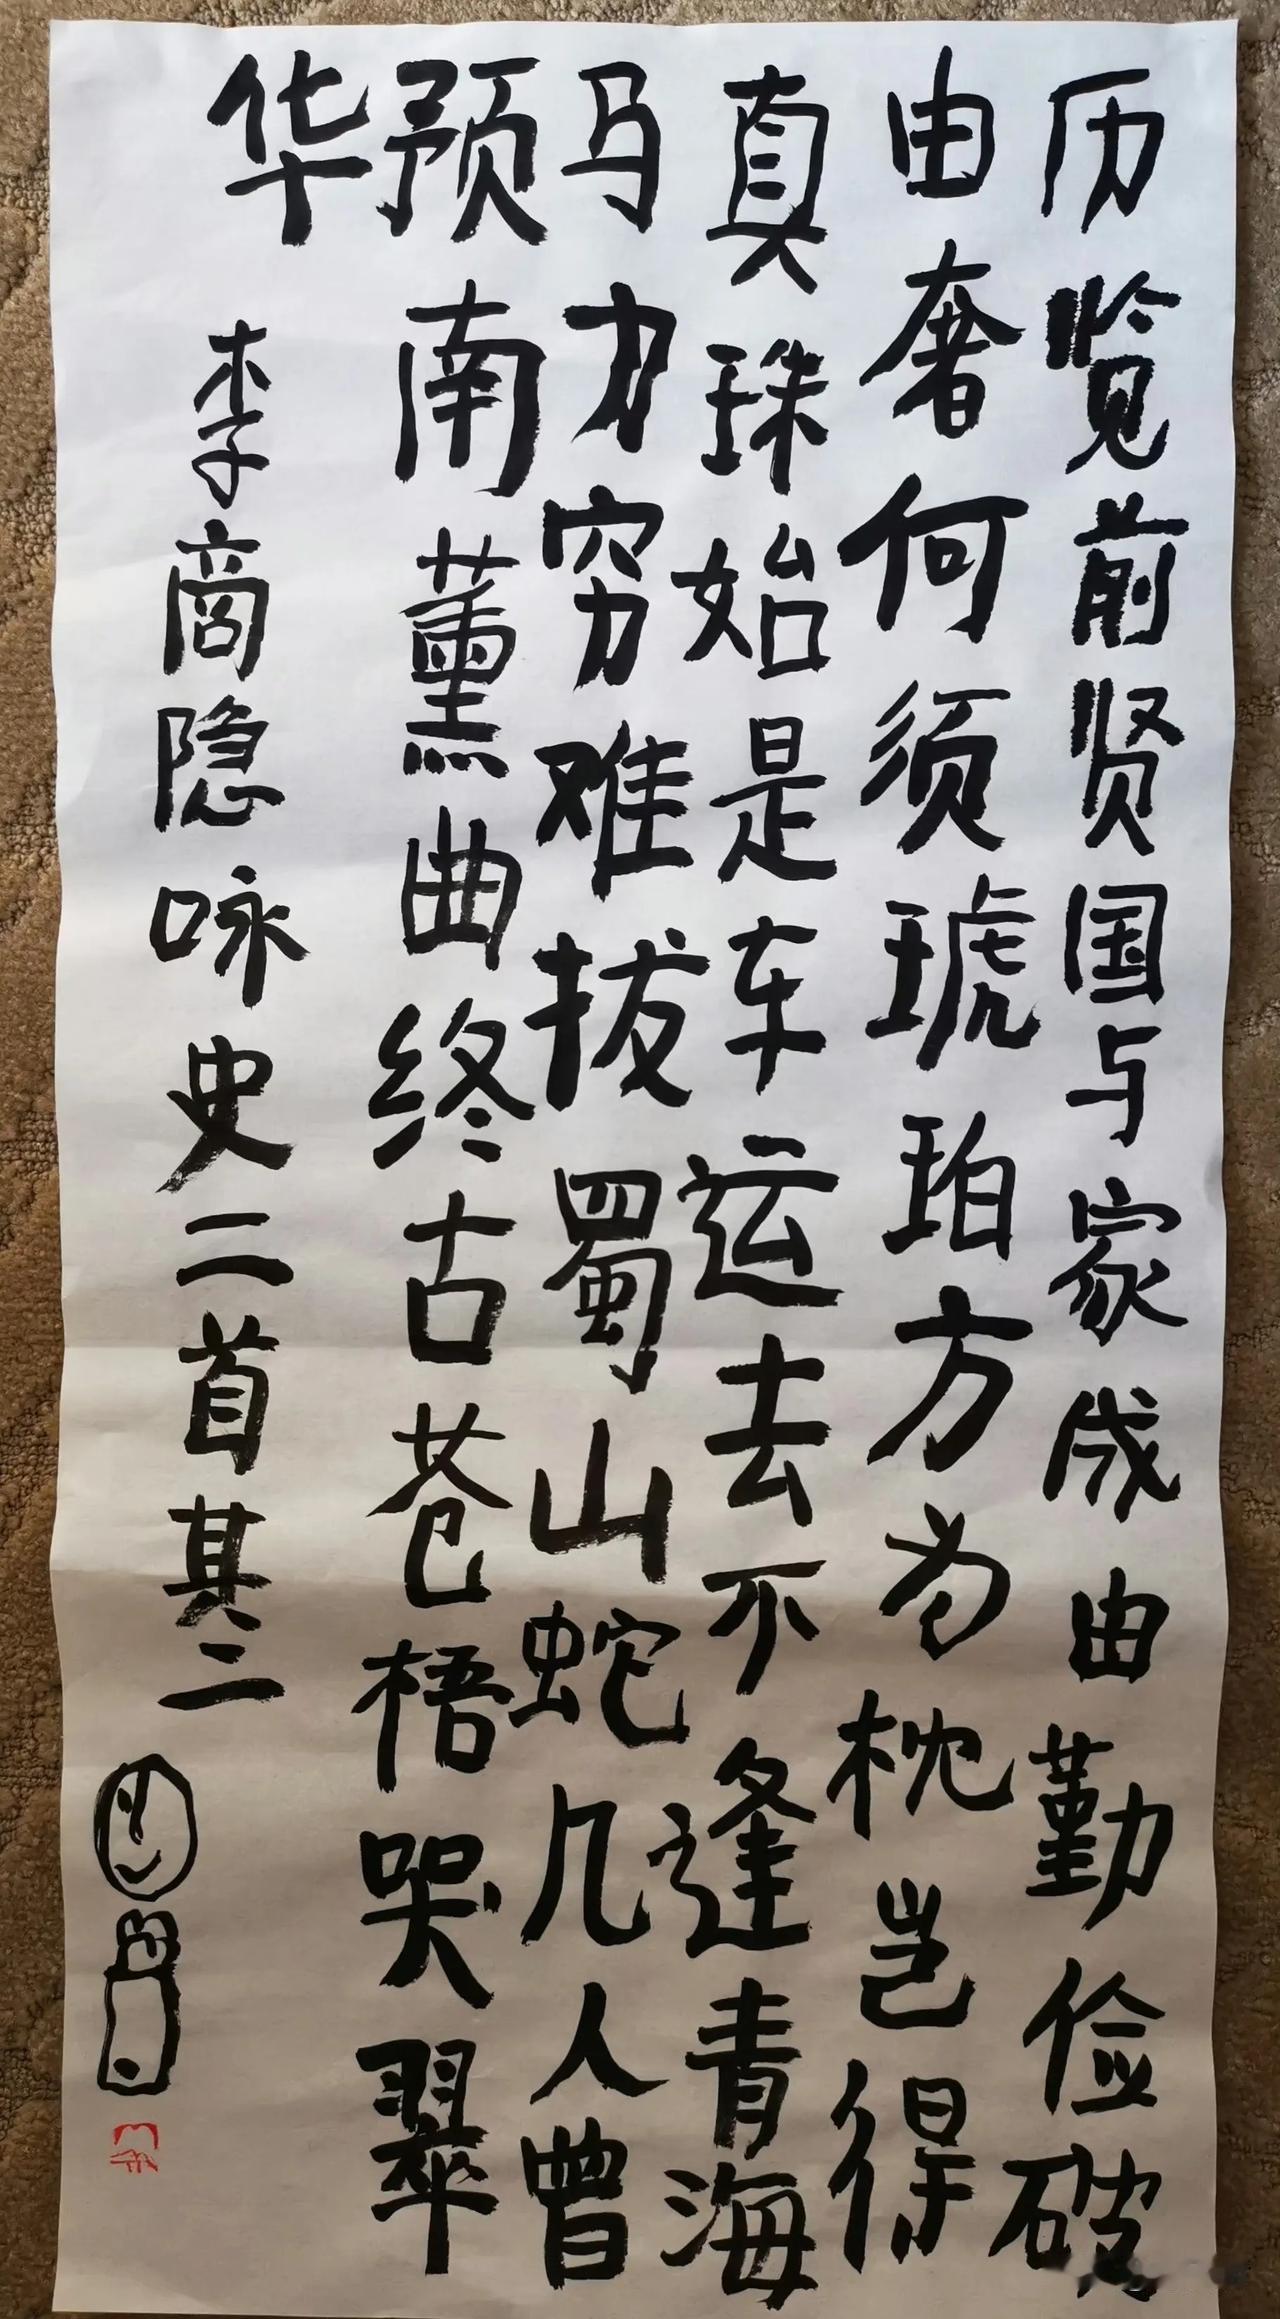 历览前贤国与家成由勤俭破
由奢何须琥珀方为枕岂得
真珠始是车运去不逢青海
马力穷难拔蜀山蛇几人曾
预南薰曲终古苍梧哭翠
华
李商隐咏史二首其二